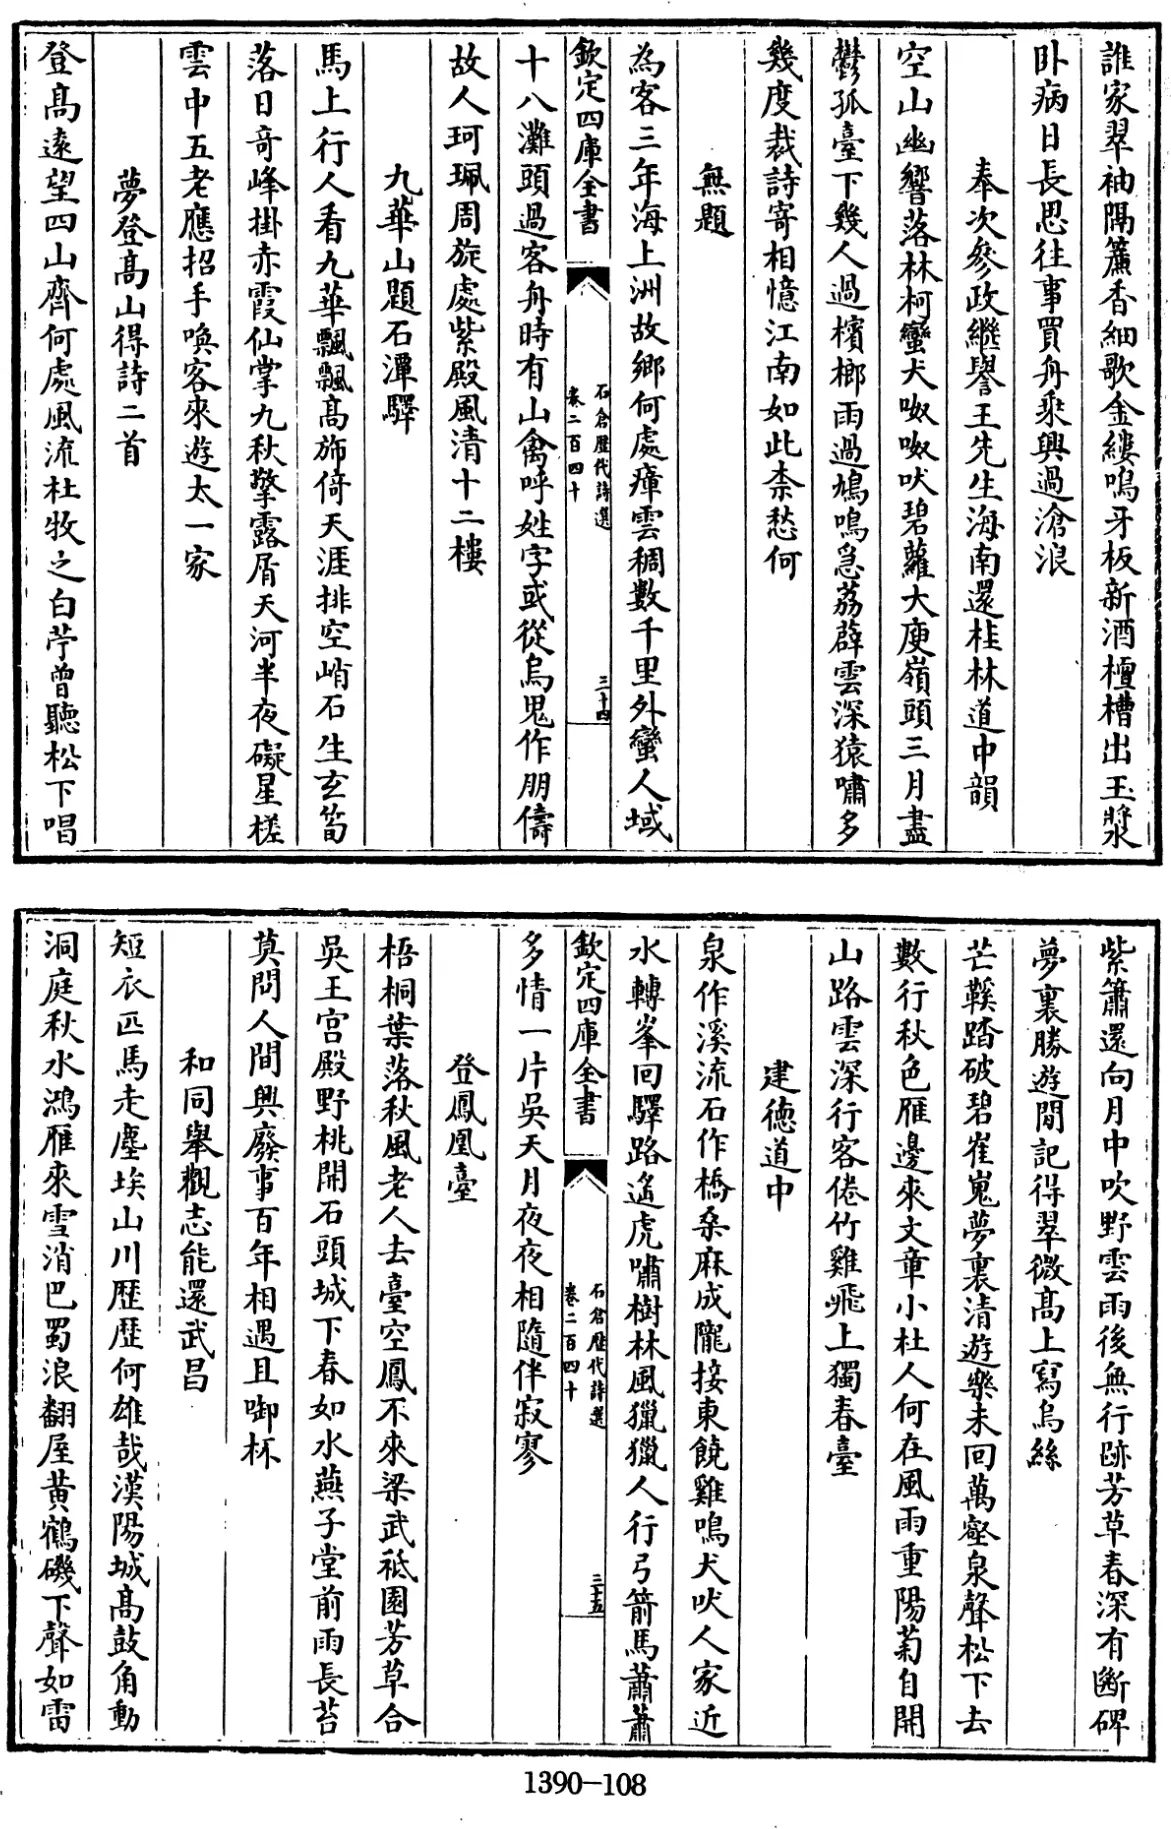 誰家翠袖隔簾香細歌金縷鳴牙板新酒檀槽出玉漿
卧病日長思往事買舟乗興過滄浪
奉次叅政繼譽王先生海南還桂林道中韻
空山幽響落林柯蠻犬呶呶吠碧蘿大庾嶺頭三月盡
鬱孤臺下幾人過檳榔雨過鳩鳴急荔薜雲深猿嘯多
幾度裁詩寄相憶江南如此柰愁何
無題
為客三年海上洲故鄉何處瘴雲稠數千里外蠻人域
欽定四庫全書
石倉歴代詩選
卷二百四十
三十四
十八灘頭過客舟時有山禽呼姓字或從烏鬼作朋儔
故人珂珮周旋處紫殿風清十二樓
九華山題石潭驛
馬上行人看九華飄飄髙斾倚天涯排空峭石生玄笋
落日竒峰掛赤霞仙掌九秋擎露屑天河半夜礙星槎
雲中五老應招手喚客來遊太一家
夢登髙山得詩二首
登髙逺望四山齊何處風流杜牧之白苧曾聽松下唱
紫簫還向月中吹野雲雨後無行跡芳草春深有斷碑
夢裏勝遊閒記得翠微髙上寫烏絲
芒鞵踏破碧崔嵬夢裏清遊樂未回萬壑泉聲松下去
數行秋色雁邊來文章小杜人何在風雨重陽菊自開
山路雲深行客倦竹雞飛上獨春臺
建徳道中
泉作溪流石作橋桑麻成隴接東饒雞鳴犬吠人家近
水轉峯回驛路遙虎嘯樹林風獵獵人行弓箭馬蕭蕭
欽定四庫全書
石倉歴代詩選
卷二百四十
三十五
多情一片吳天月夜夜相隨伴寂寥
登鳳凰臺
梧桐葉落秋風老人去臺空鳳不來梁武祗園芳草合
吳王宮殿野桃開石頭城下春如水燕子堂前雨長苔
莫問人間興廢事百年相遇且啣杯
和同舉觀志能還武昌
短衣匹馬走塵埃山川歴歴何雄哉漢陽城髙鼓角動
洞庭秋水鴻雁來雪消巴蜀浪翻屋黄鶴磯下聲如雷
1390—108